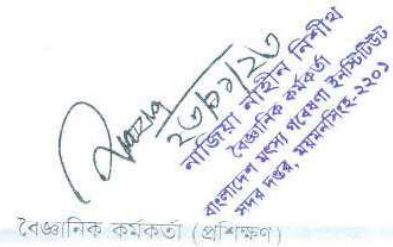 ২৩/০১/২৩
নাজিয়া নাহীন নিশীথ
বৈজ্ঞানিক কর্মকর্তা
বাংলাদেশ মৎস্য গবেষণা ইনস্টিটিউট
সদর দপ্তর, ময়মনসিংহ-২২০১
বৈজ্ঞানিক কর্মকর্তা (প্রশিক্ষণ)